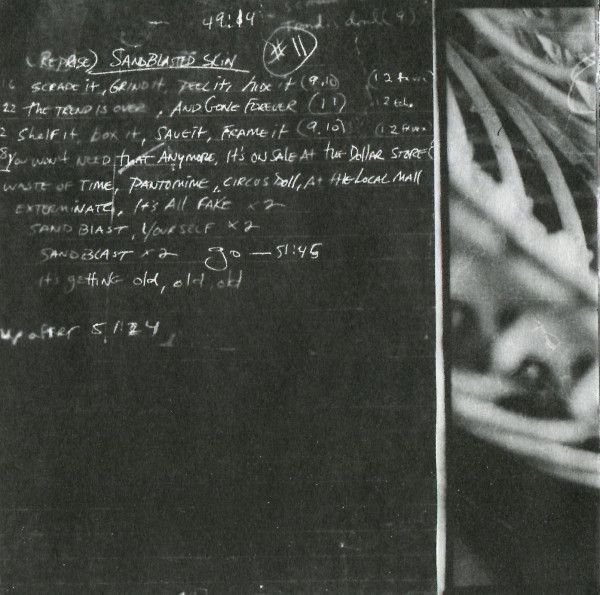 — 49:14
(REPRISE) SANDBLASTED SKIN #11
SCRAPE it, GRIND it, PEEL it, hide it (9,10) (12 times)
22 The TREND IS OVER, AND GONE FOREVER (11)
2 Shelf it, box it, SAVE it, FRAME it (9,10) (12 times)
YOU WON'T NEED that ANYMORE, It's ON SALE At the DOLLAR STORE
WASTE OF TIME, PANTOMINE, CIRCUS DOLL, At tHE LOCAL MALL
EXTERMINATE, It's All FAKE x2
SAND BLAST, YOURSELF x2
SANDBLAST x2 go — 51:45
it's getting old, old, old
up after 51:24